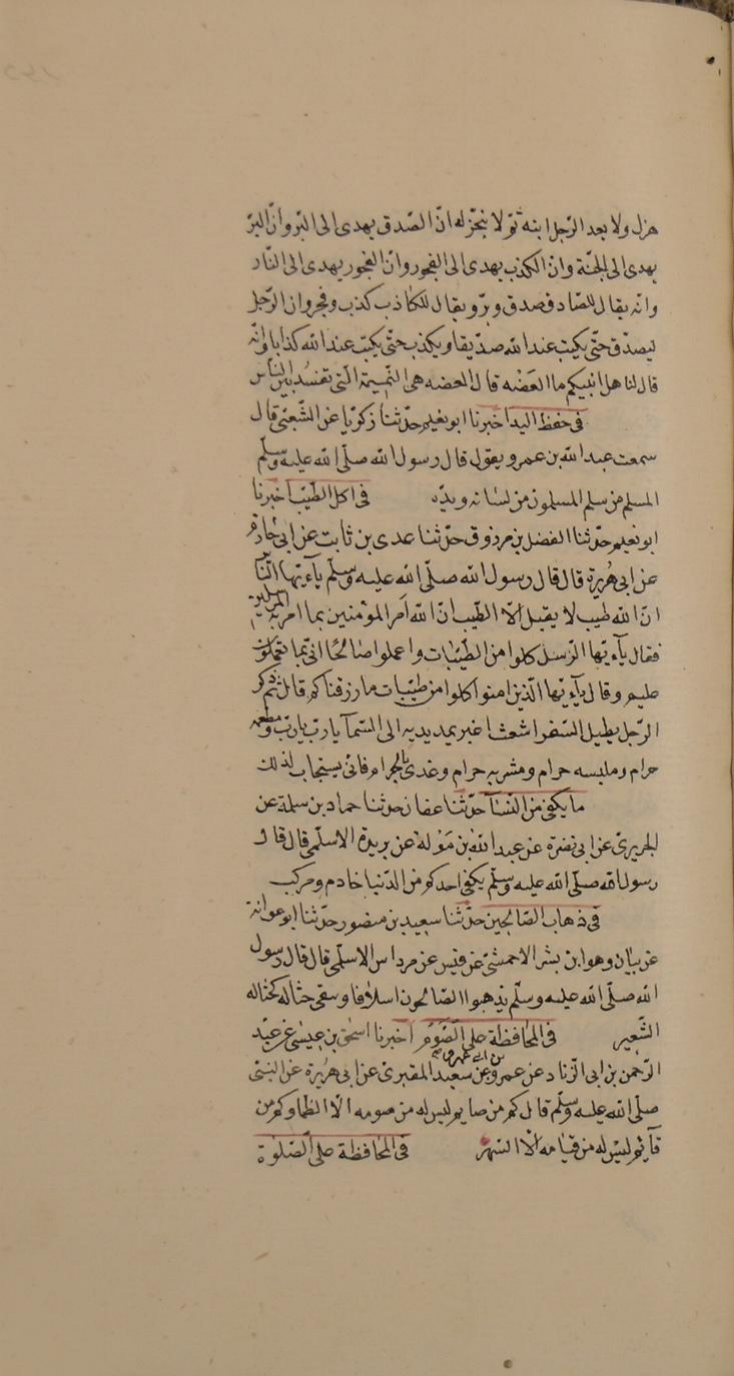 هزل ولا يعد الرّجل ابنه ثمّ لا ينجّز له انّ الصّدق يهدى الى البرّ وانّ البرّ
يهدى الى الجنّة وانّ الكذب يهدى الى الفجور وانّ الفجور يهدى الى النّار
وانّه يقال للصّادق صدق وبرّ ويقال للكاذب كذب وفجر وان الرّجل
ليصدّق حتّى يكتب عند الله صدّيقا ويكذب حتّى يكتب عند الله كذابا وانّه
قال لنا هل انبيكم ما العَضْه قال العضه هى النّميمة الّتى تفسُد بين النّاس
فى حفظ اليد اخبرنا ابو نعيم حدّثنا زكريّا عن الشّعبىّ قال
سمعت عبد الله بن عمرو يقول قال رسول الله صلّى الله عليه وسلّم
المسلم من سلم المسلمون من لسانه ويدّه فى اكل الطّيّب اخبرنا
ابو نعيم حدّثنا الفضل بن مرزوق حدّثنا عدى بن ثابت عن ابى حازم
عن ابى هُريرة قال قال رسول الله صلّى الله عليه وسلّم يآءيّها النّاس
انّ الله طيب لا يقبل الّا الطّيب انّ الله اَمر المؤمنين بما امر به المرسلين
فقال يآءيّها الرّسل كلوا من الطّيّبات واعملوا صالحًا انّى بما تعملون
عليم وقال يآءيّها الّذين امنوا كلوا من طيّبات ما رزقناكم قال ثمّ ذكر
الرّجل يطيل السّفر اشعث اغبر يمد يديه الى السّمآ يا رب يا ربّ ومطعمه
حرام وملبسه حرام ومشربه حرام وغذى بالحرام فانّى يستجاب لذلك
ما يكفى من الدّنيآ حدّثنا عفان حدثنا حماد بن سلمة عن
الجريرىّ عن ابى نضرة عن عبد الله بن مَوَلة عن بريدة الاسلمى قال قال
رسول الله صلّى الله عليه وسلّم يكفى احدكم من الدّنيا خادم ومركب
فى ذهاب الصّالحين حدّثنا سعيد بن منصور حدّثنا ابو عوانة
عن بيان وهو ابن بشر الاحمسّى عن قيس عن مرداس الاسلمى قال قال رسول
الله صلّى الله عليه وسلّم يذهبوا الصّالحون اسلافا ويبقى حثالة كحثاله
الشّعير فى المحافظة على الصّوم اخبرنا اسحق بن عيسى عن عبد
الرّحمن بن ابى الزّناد عن عمرو بن ابى عمرو عن سعيد المقبرى عن ابى هريرة عن النبىّ
صلّى الله عليه وسلّم قال كم من صايم ليس له من صومه الّا الظّما وكم من
قآئم ليس له من قيامه الّا السّهر فى المحافظة على الصّلوة